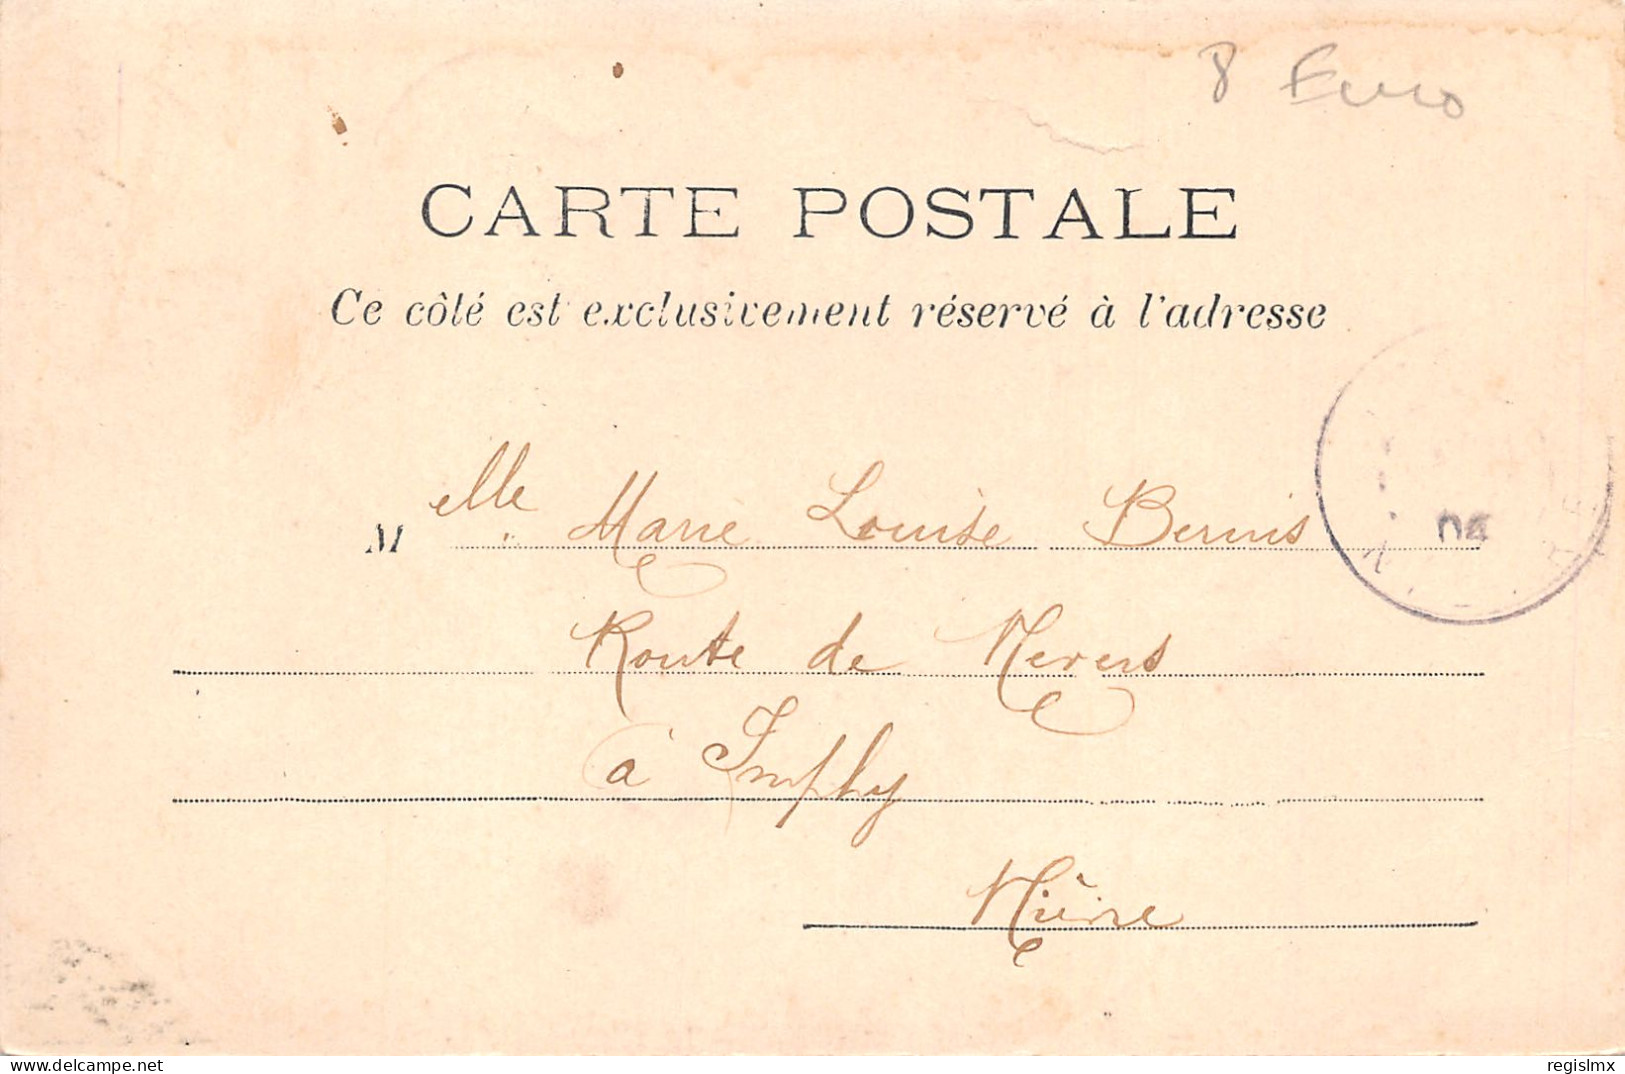 8 Euro
CARTE POSTALE
Ce côté est exclusivement réservé à l'adresse
Melle Marie Louise Bernis
Route de Nevers
à Imphy
Nièvre
www.delcampe.net
regislmx